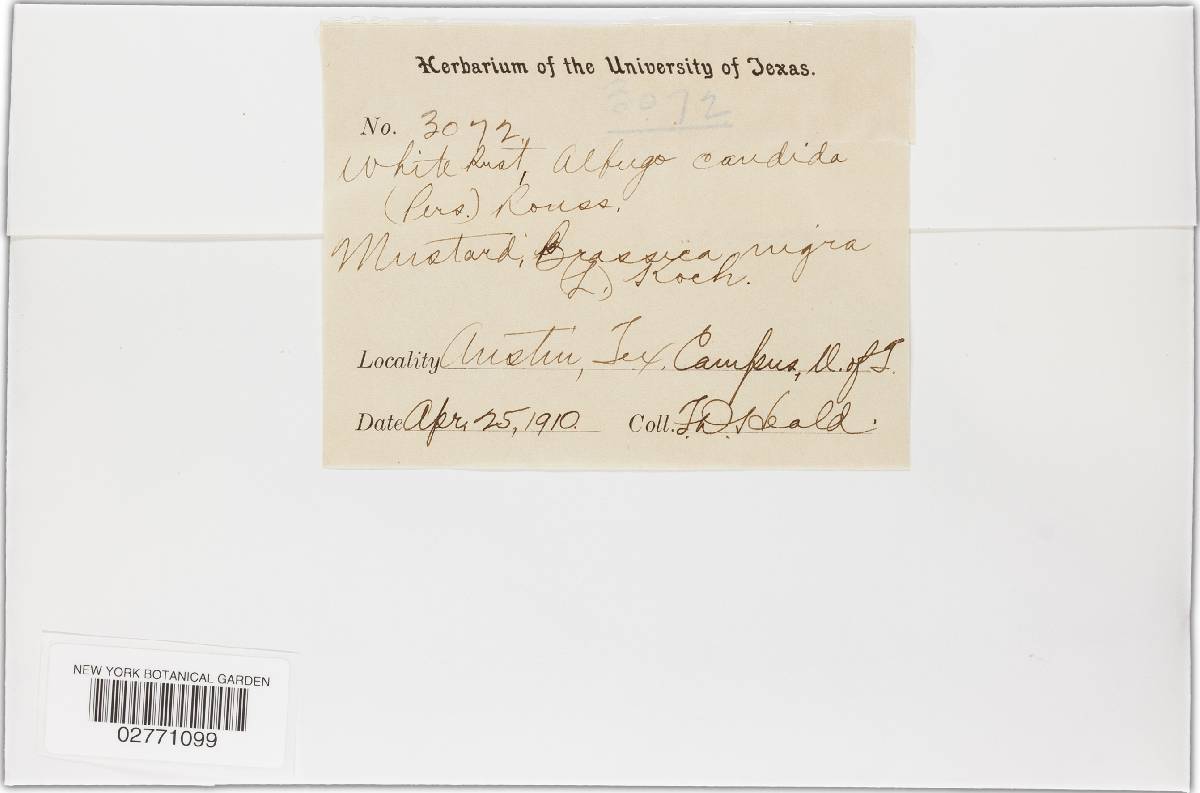 Herbarium of the University of Texas.
3072
No. 3072.
White Rust, Albugo candida
(Pers.) Rouss.
Mustard, Brassica nigra
(L.) Koch.
Locality Austin, Tex. Campus, U. of T.
Date Apr. 25, 1910. Coll. F. D. Heald.
NEW YORK BOTANICAL GARDEN
02771099